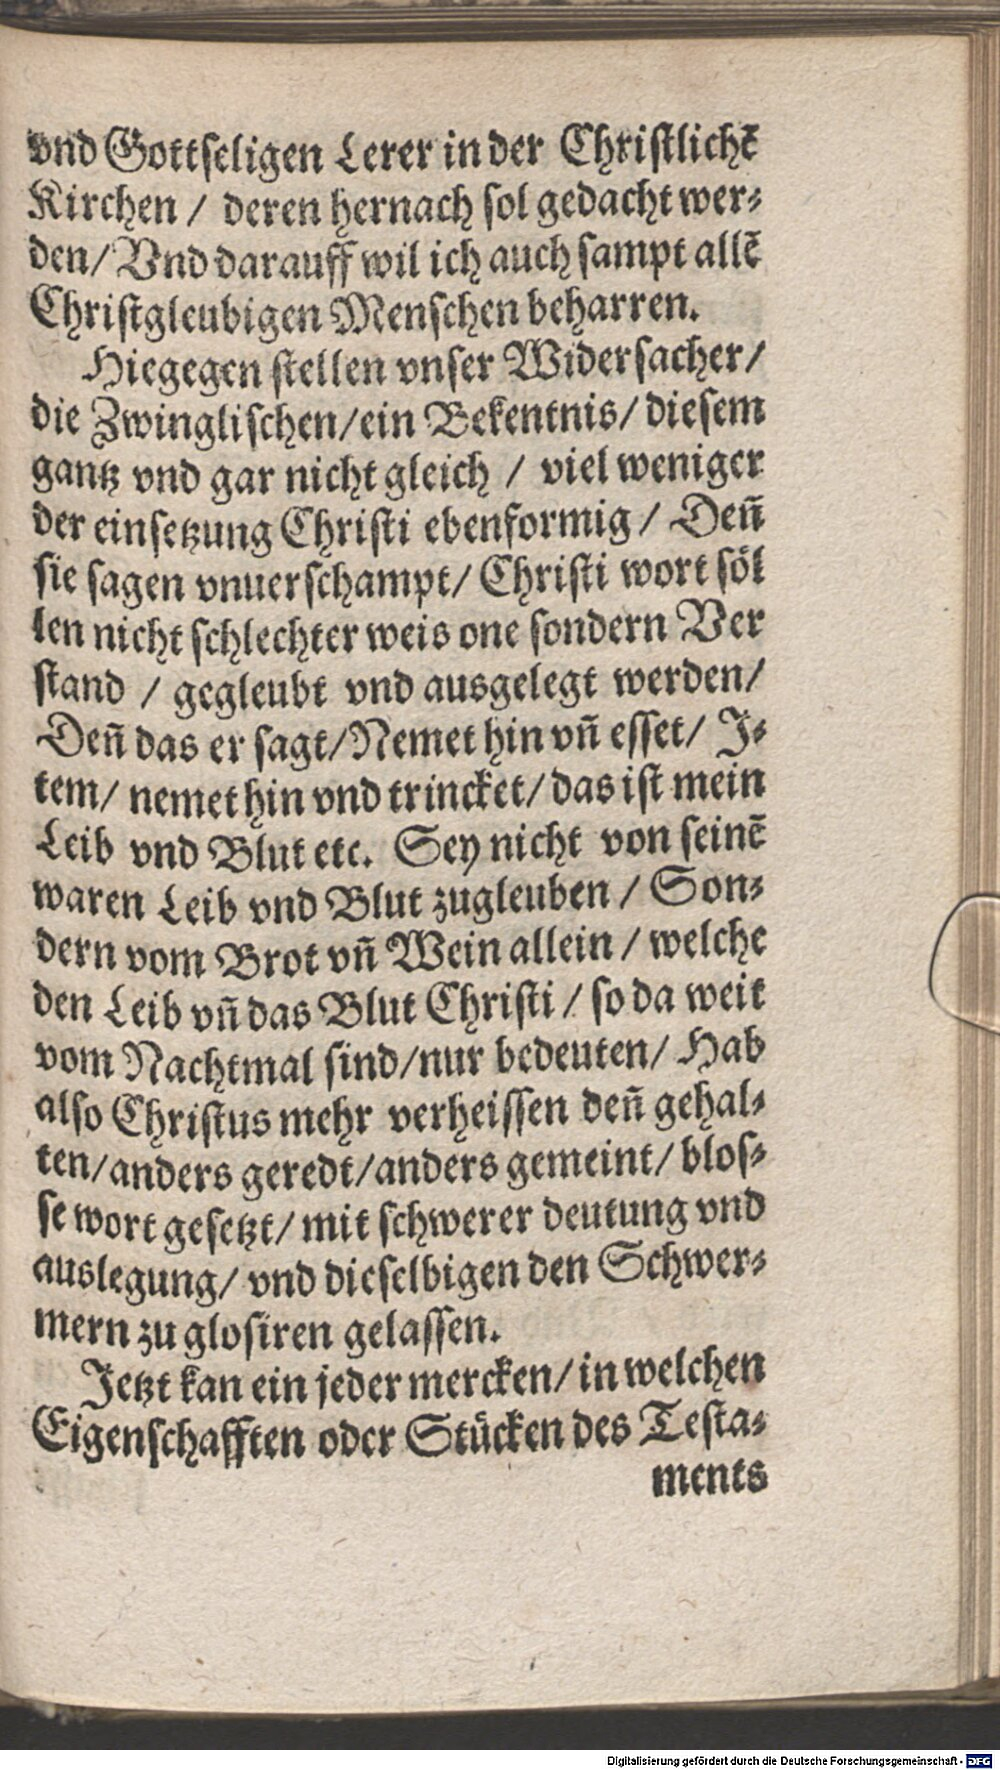 vnd Gottseligen Lerer in der Christlichē
Kirchen / deren hernach sol gedacht wer⸗
den/ Vnd darauff wil ich auch sampt allē
Christgleubigen Menschen beharren.
Hiegegen stellen vnser Widersacher/
die Zwinglischen/ein Bekentnis/ diesem
gantz vnd gar nicht gleich / viel weniger
der einsetzung Christi ebenformig / Deñ
sie sagen vnuerschampt/ Christi wort söl
len nicht schlechter weis one sondern Ver
stand / gegleubt vnd ausgelegt werden/
Deñ das er sagt/Nemet hin vñ esset/ J⸗
tem/ nemet hin vnd trincket/ das ist mein
Leib vnd Blut etc. Sey nicht von seinē
waren Leib vnd Blut zugleuben / Son⸗
dern vom Brot vñ Wein allein / welche
den Leib vñ das Blut Christi / so da weit
vom Nachtmal sind/nur bedeuten/ Hab
also Christus mehr verheissen deñ gehal⸗
ten/anders geredt/anders gemeint/ blos⸗
se wort gesetzt/ mit schwerer deutung vnd
auslegung/ vnd dieselbigen den Schwer⸗
mern zu glosiren gelassen.
Jetzt kan ein jeder mercken/ in welchen
Eigenschafften oder Stücken des Testa⸗
ments
Digitalisierung gefördert durch die Deutsche Forschungsgemeinschaft - DFG